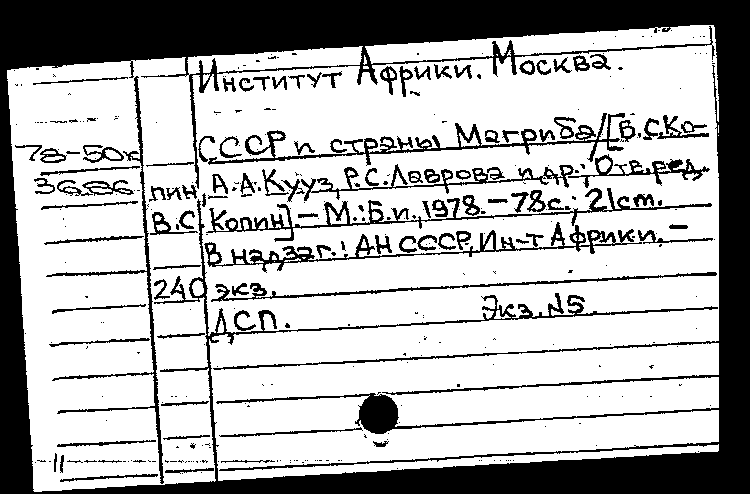 Институт Африки. Москва.
78-50к СССР и страны Магриба/[В.С.Ко-
36686 пин, А.А.Кууз, Р.С.Лаврова и др.; Отв.ред.
В.С. Копин].- М.: Б.и., 1978.- 78с.; 21cm.
В надзаг.: АН СССР, Ин-т Африки.-
240 экз.
ДСП. Экз. N5.
11